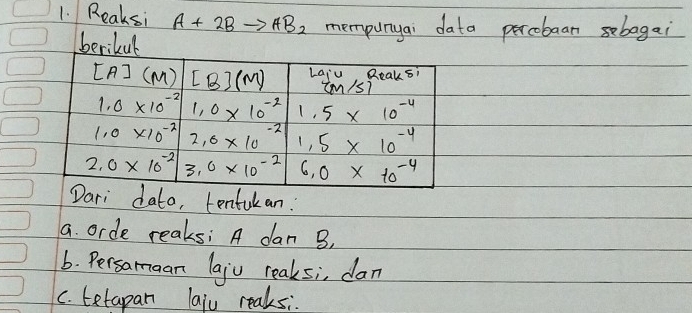 1. Reaksi A + 2B → AB₂ mempunyai data percobaan sebagai
berikut
[A] (M) [B] (M) Laju Reaksi (M/s)
1.0 × 10⁻² 1,0 × 10⁻² 1.5 × 10⁻⁴
1.0 × 10⁻² 2,0 × 10⁻² 1,5 × 10⁻⁴
2.0 × 10⁻² 3,0 × 10⁻² 6,0 × 10⁻⁴
Dari data, tentukan:
a. orde reaksi A dan B,
b. Persamaan laju reaksi, dan
c. tetapan laju reaksi.